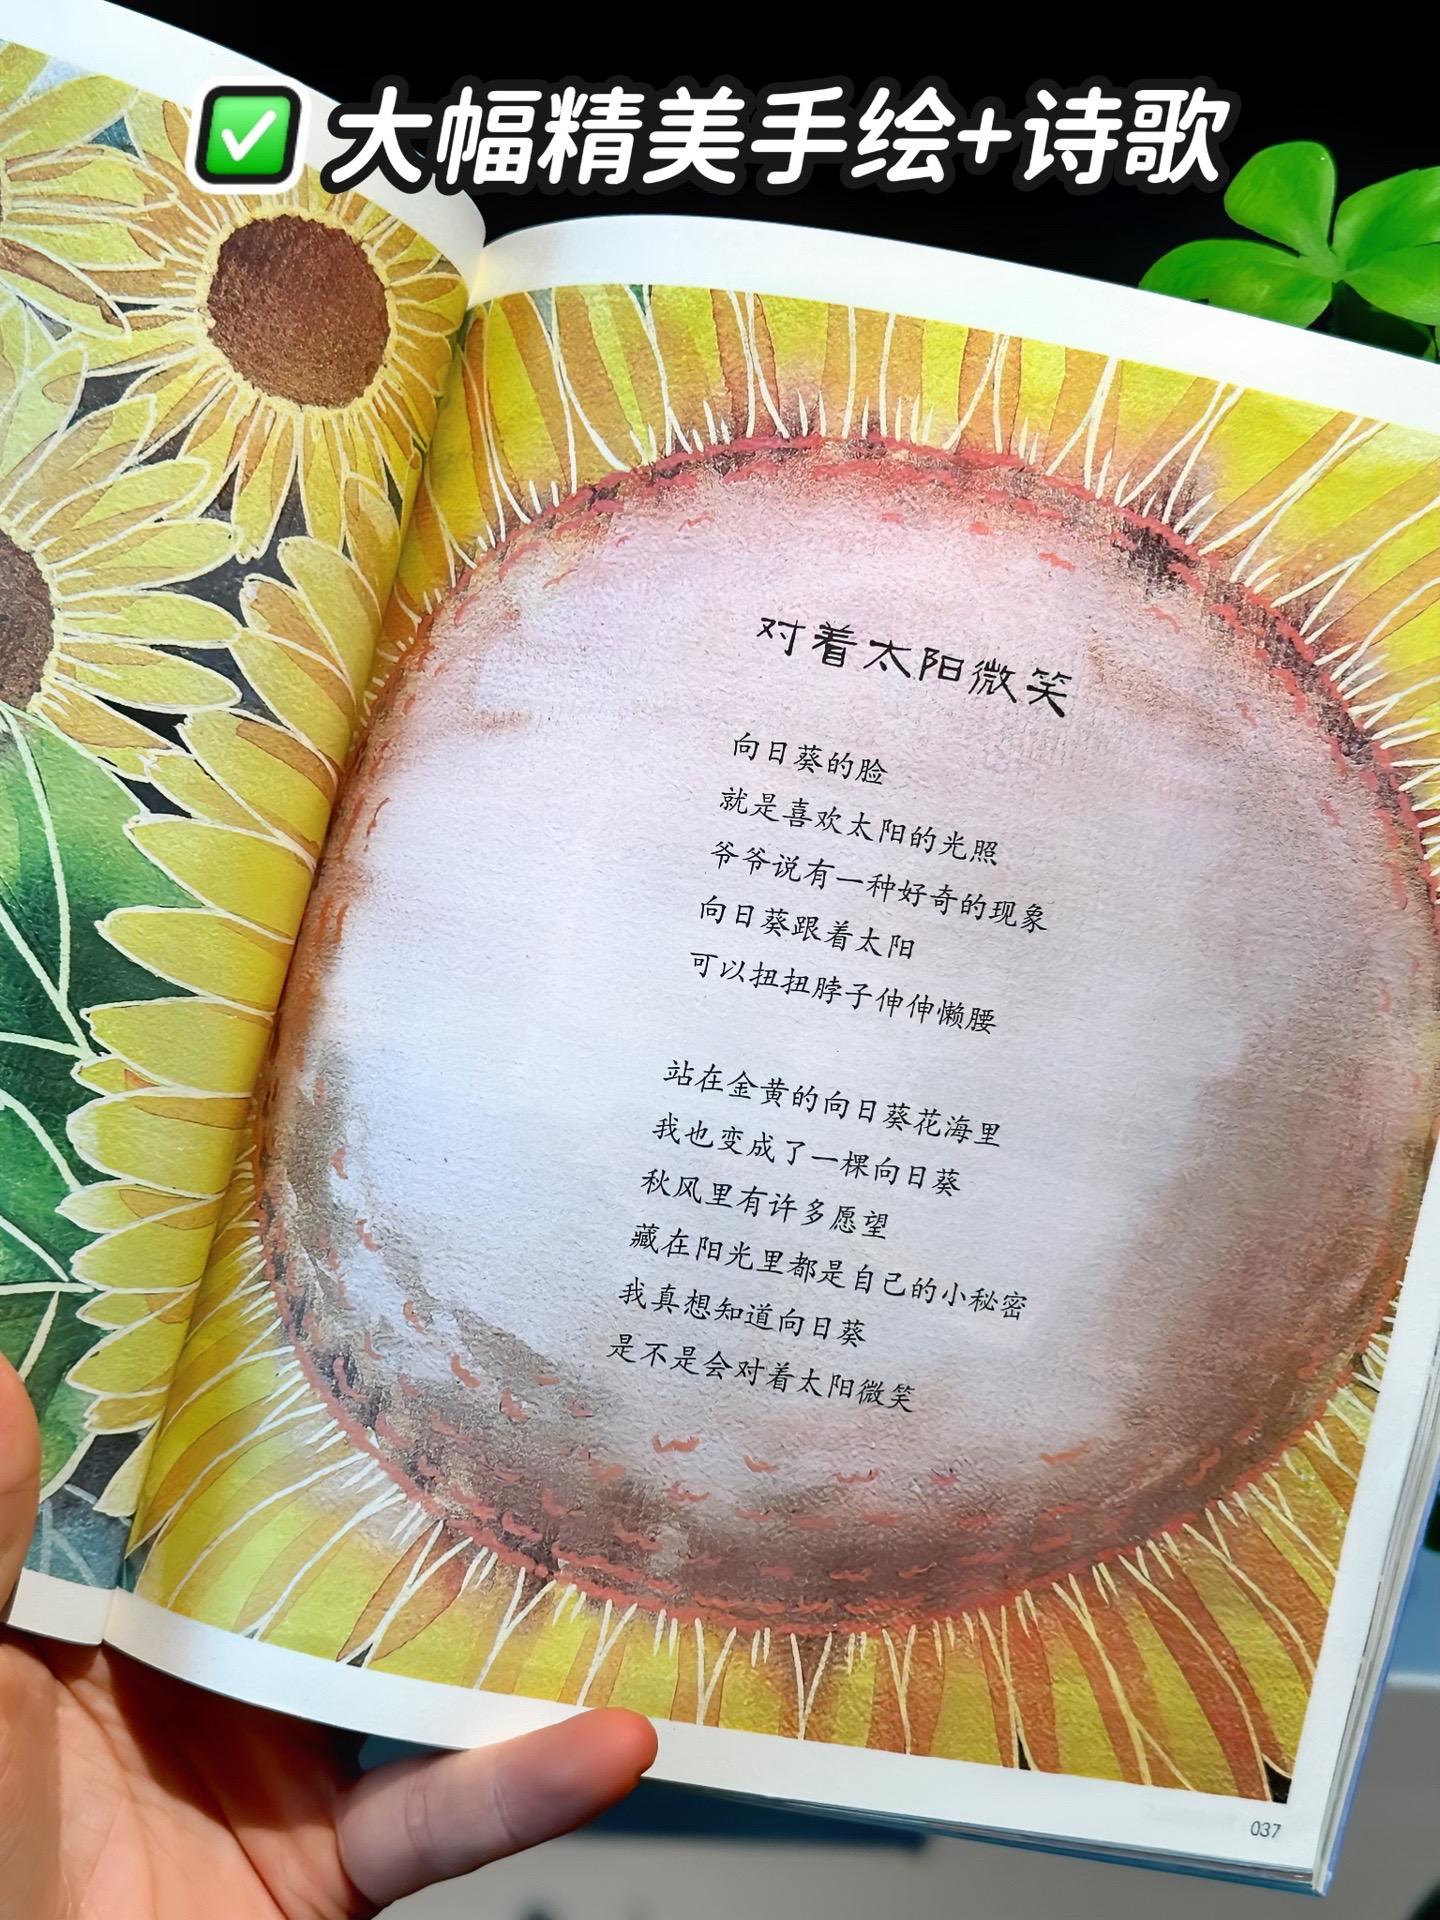 大幅精美手绘+诗歌
对着太阳微笑
向日葵的脸
就是喜欢太阳的光照
爷爷说有一种好奇的现象
向日葵跟着太阳
可以扭扭脖子伸伸懒腰
站在金黄的向日葵花海里
我也变成了一棵向日葵
秋风里有许多愿望
藏在阳光里都是自己的小秘密
我真想知道向日葵
是不是会对着太阳微笑
037